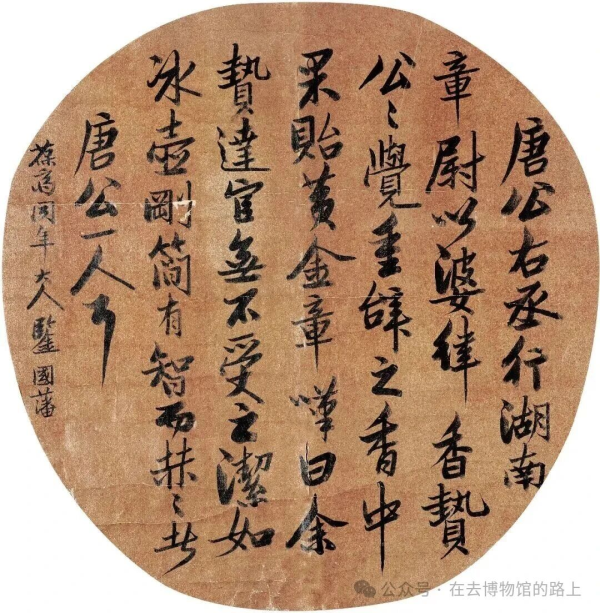 唐公右丞行湖南
章尉以婆律香贄
公〻覺重辭之香中
果貽黄金章嘩曰余
贄達官無不受之潔如
冰壺剛簡有智而
唐公一人耳
葆同年大人鑒國藩
公众号·在去博物馆的路上